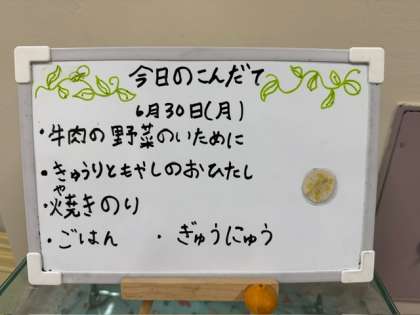 今日のこんだて
6月30日(月)
・牛肉の野菜のいために
・きゅうりともやしのおひたし
・焼きのり
や
・ごはん ・ぎゅうにゅう